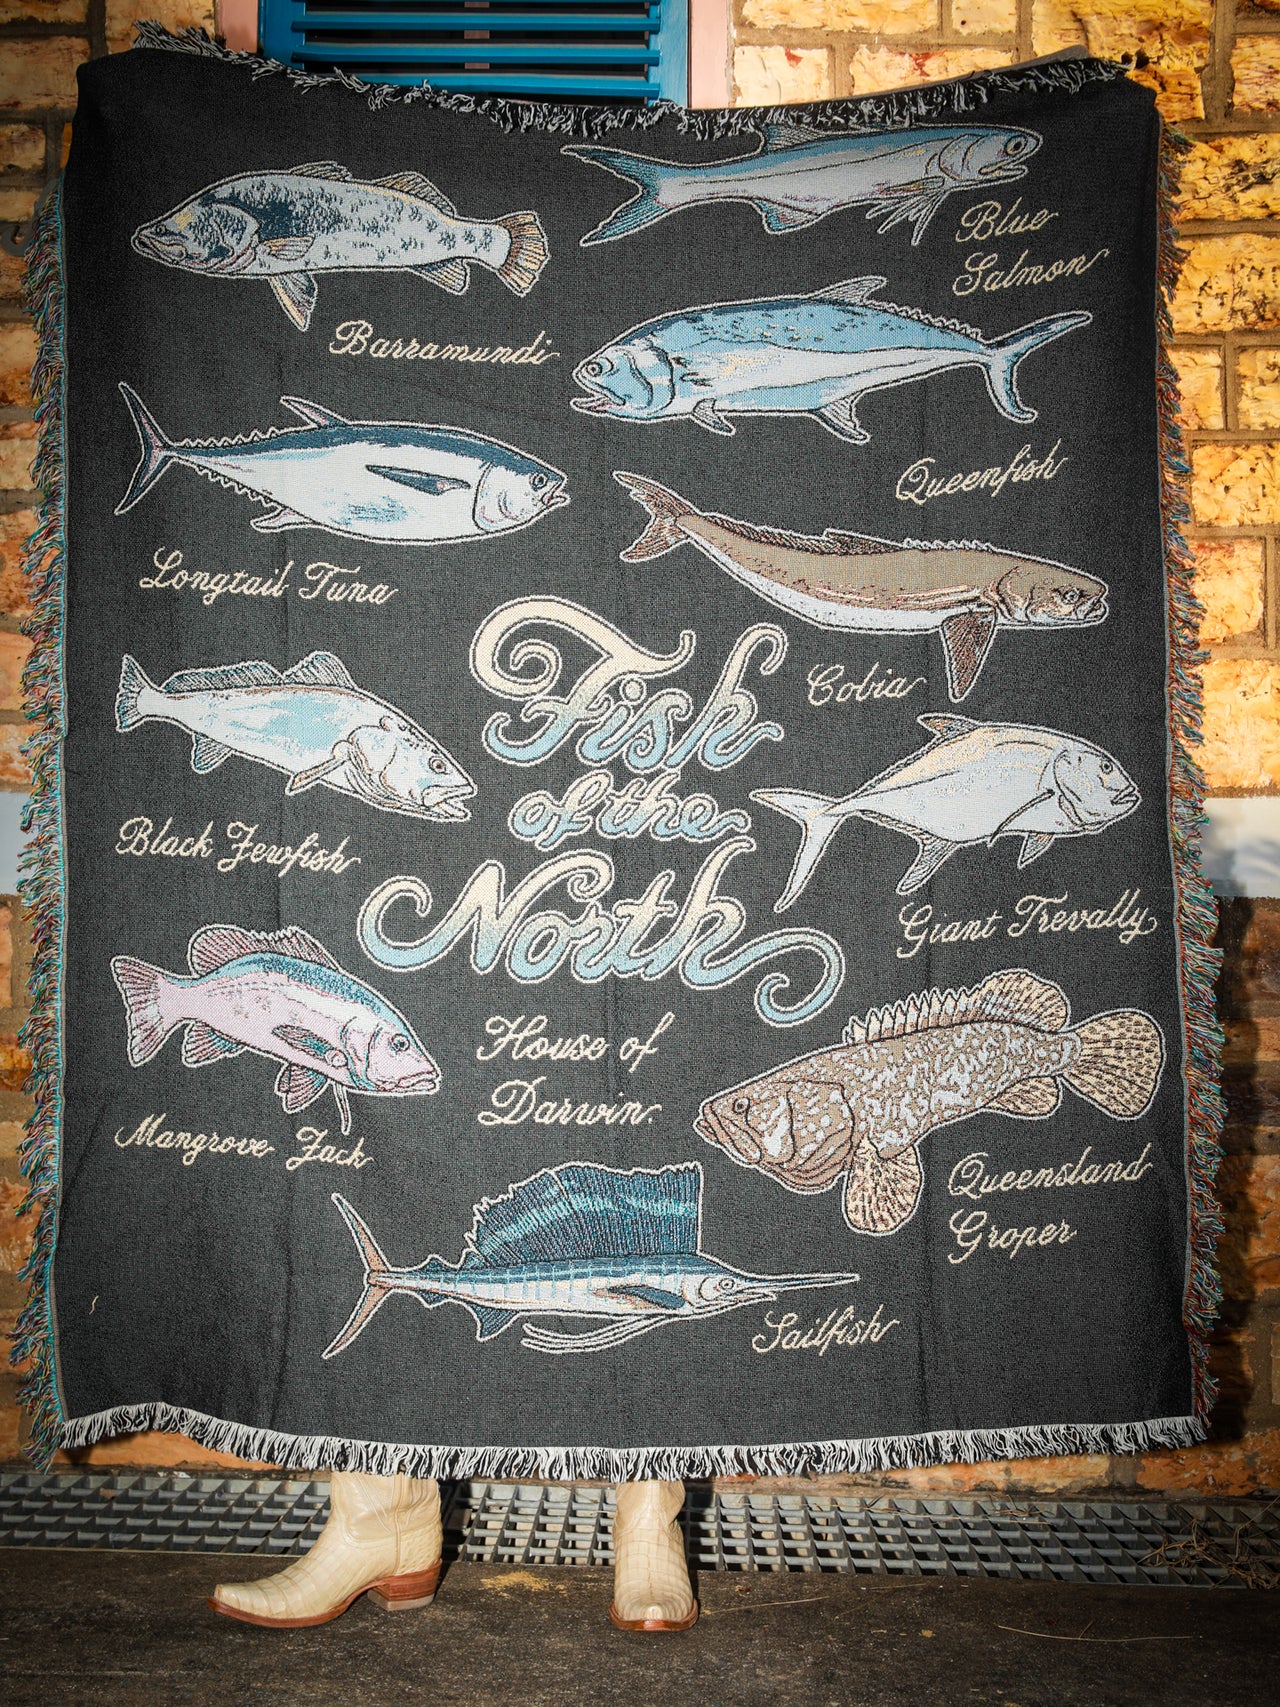 Blue
Salmon
Barramundi
Queenfish
Longtail Tuna
Cobia
Fish
of the
North
Black Jewfish
Giant Trevally
House of
Darwin.
Mangrove Jack
Queensland
Groper
Sailfish